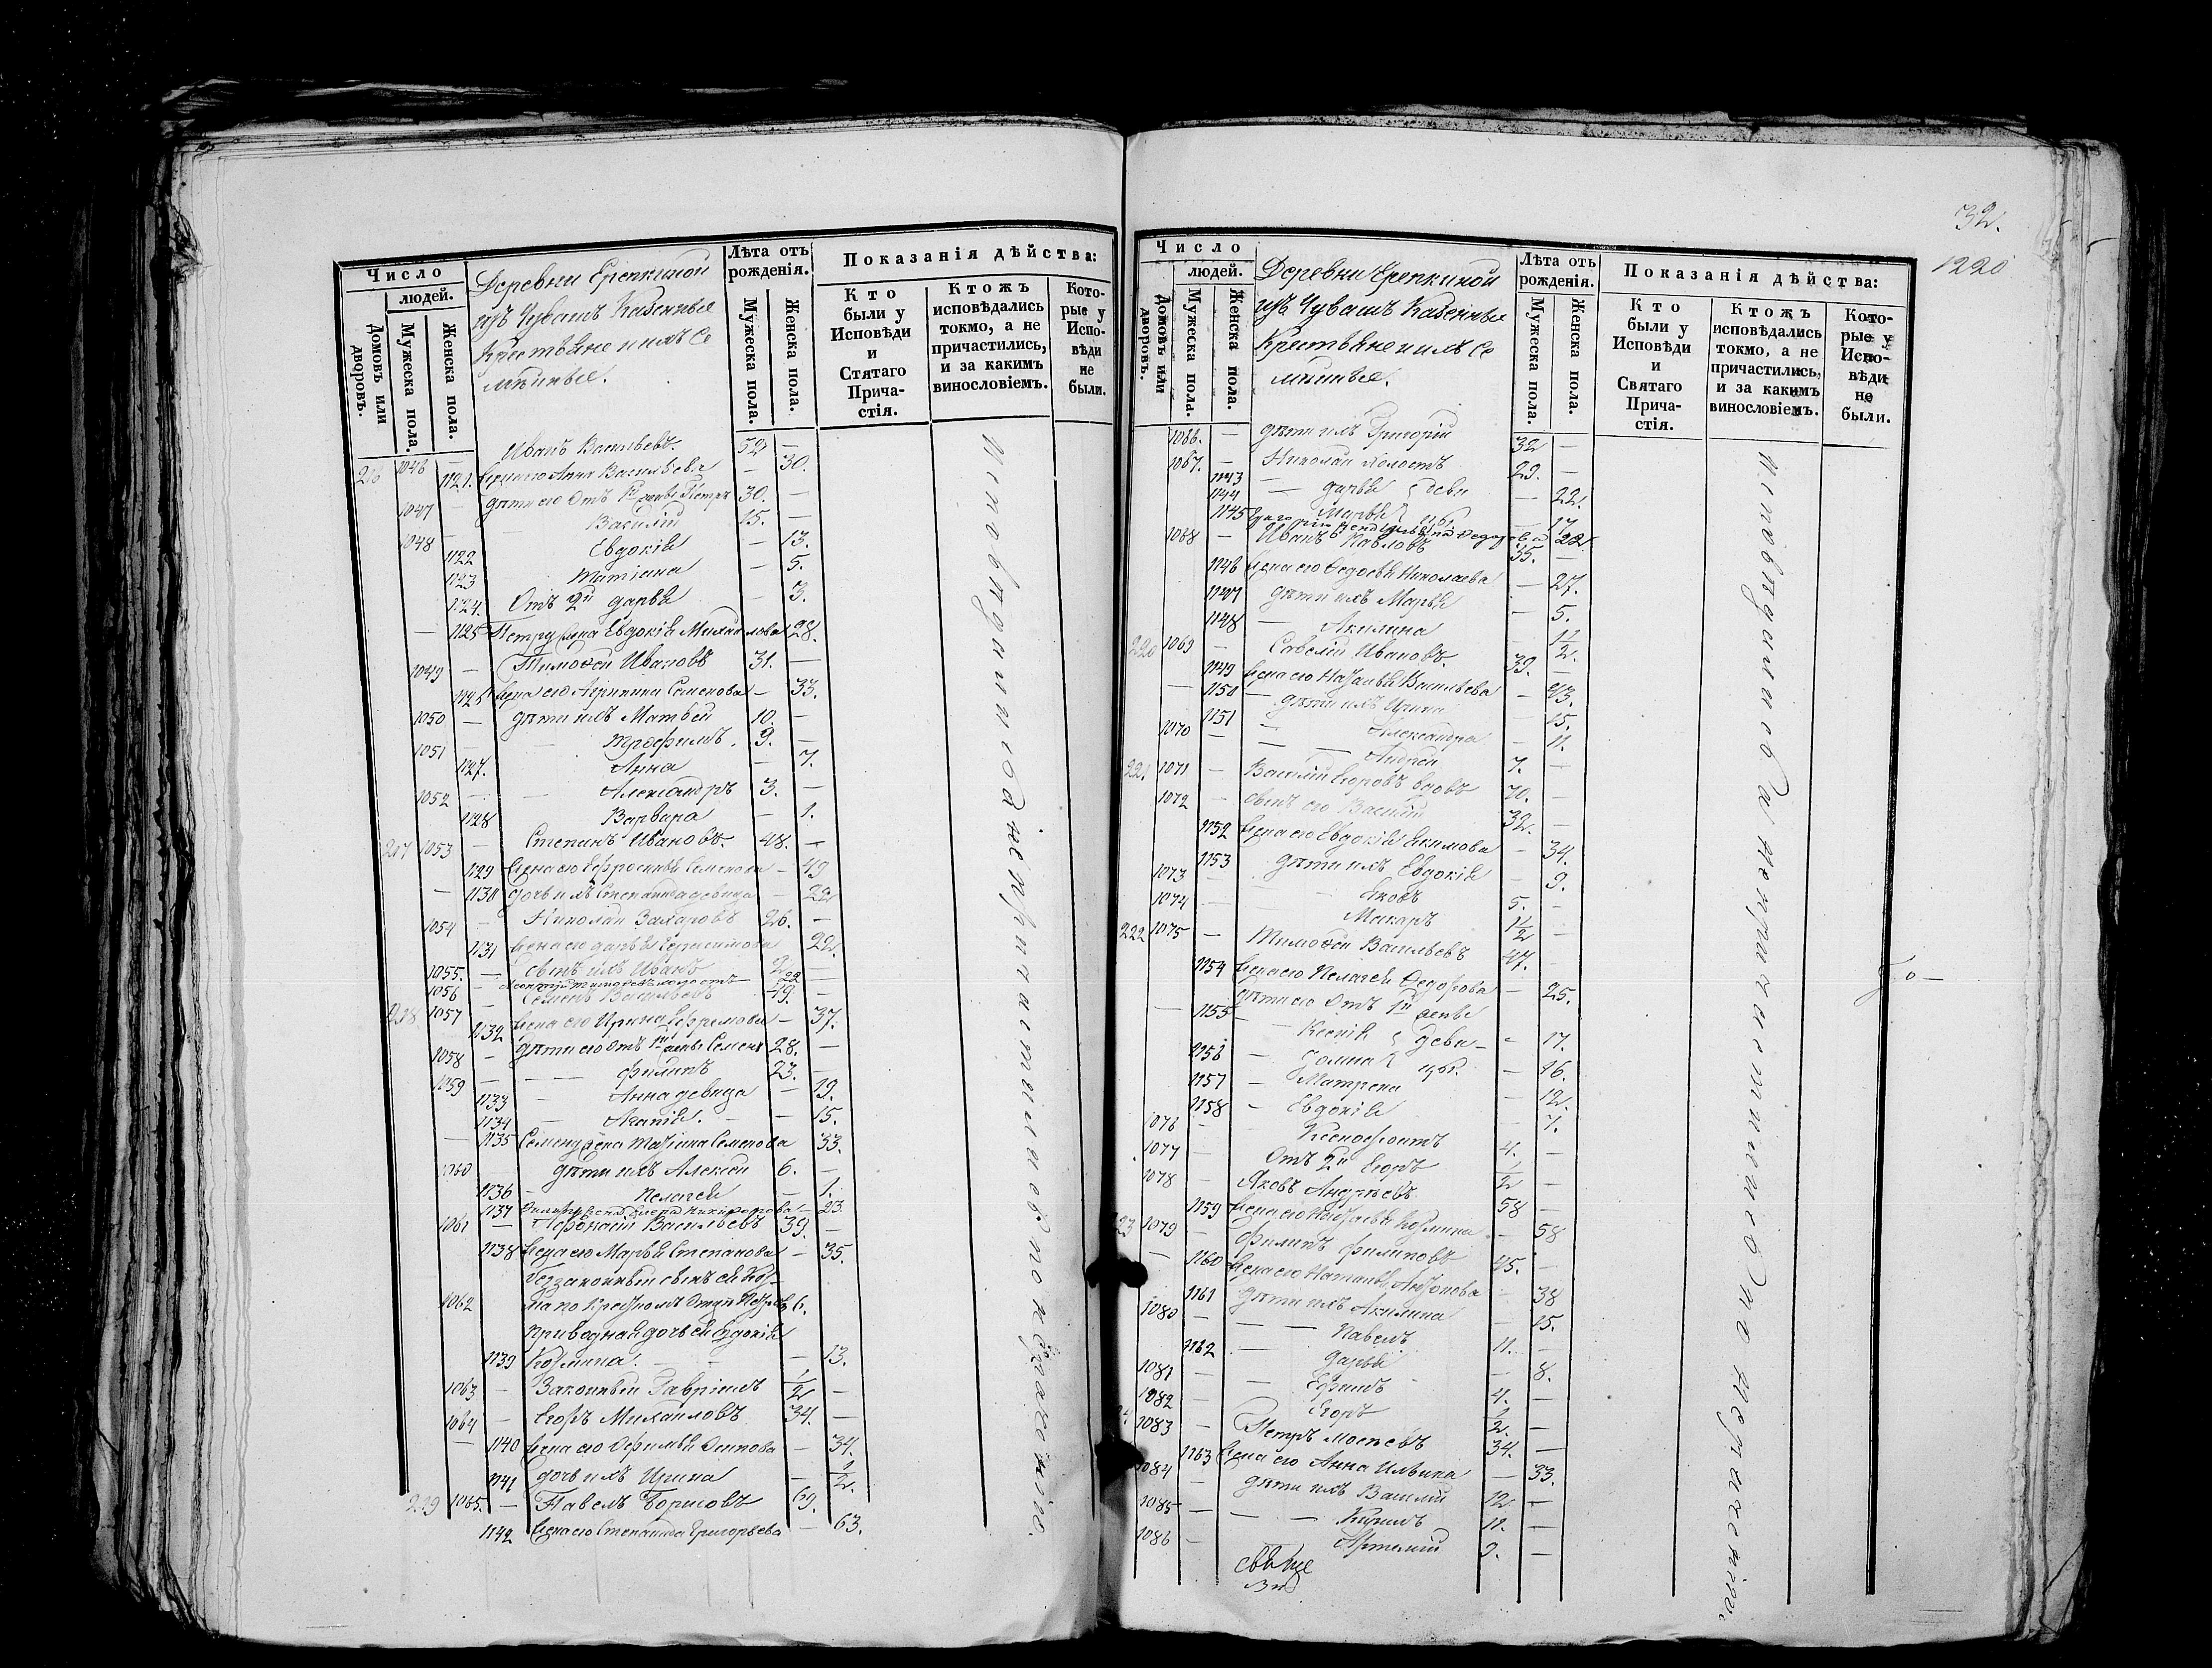 Число
людей.
Домовъ или дворовъ.
Мужеска пола.
Женска пола.
Деревни Ерепкиной
изъ Чувашъ Казенные
Крестьяне и ихъ Се
мѣйные.
Лѣта отъ рожденія.
Мужеска пола.
Женска пола.
Показанія дѣйства:
Кто были у Исповѣди и Стятаго Причастія.
Ктожъ исповѣдались токмо, а не причастились, и за какимъ винословіемъ.
Которые у Исповѣди не были.
216 1046 — Иванъ Васильевъ. 52 —
1121. Жена его Анна Васильева — 30.
1047 — дѣти его Отъ 1й жены Петръ 30. —
1048 — Василій 15. —
1122 Евдокія — 13.
1123 Татіана — 5.
1124. Отъ 2й дарья — 3.
— 1125 Петру жена Евдокія Михайлова 28.
1049 — Тимоѳей Ивановъ 31. —
1126 Жена его Агрипина Семенова — 33.
1050 — дѣти ихъ Матвей 10. —
1051 — Трофимъ. 9. —
1127. Анна — 7.
1052 — Александръ 3. —
1128 Варвара — 1.
217 1053 — Степанъ Ивановъ. 48. —
1129 Жена его Ефросинья Семенова — 49
— 1130 дочь ихъ Степанида девица — 22
1054 — Николай Захаровъ 26. —
1131 Жена его дарья Герасимова 22.
1055. — сынъ ихъ Иванъ 2 —
1056 — холостъ 22 —
218 1057 Семенъ Васильевъ 49. —
1132 Жена его Ирина Ефремова — 37.
1058 — дѣти его Отъ 1й жены Семенъ 28. —
1059 — филипъ 23. —
1133 — Анна девица — 19.
1134 — Агатія. — 15.
— 1135 Семену жена Татіана Семенова 33.
1060 — дѣти ихъ Алексей 6. —
1136 — Пелагея — 1.
1137 Филипу жена Елена Никифорова — 23
1061 — Афонасій Васильевъ 39. —
1138 Жена его Марья Степанова — 35.
беззаконный сынъ ея Коз-
1062 ма по Крестномъ Отцѣ Петровъ 6.
приводная дочь ея Евдокія
1139 Козмина. — 13.
1063 — Законный Гавріилъ 1/2 —
1064 — Егоръ Михайловъ 34. —
— 1140 Жена его Офимья Осипова — 34.
1141 дочь ихъ Ирина — 1/2.
219 1065. — Павелъ Борисовъ 69. —
1142 Жена его Степанида Григорьева — 63.
Исповѣдушиюсѣ и непричастишиюсѣ по нераченію.
32.
1220
Число
людей.
Домовъ или дворовъ.
Мужеска пола.
Женска пола.
Деревни Ерепкиной
изъ Чувашъ Казенные
Крестьяне и ихъ Се
мѣйные.
Лѣта отъ рожденія.
Мужеска пола.
Женска пола.
Показанія дѣйства:
Кто были у Исповѣди и Святаго Причастія.
Ктожъ исповѣдались токмо, а не причастились, и за какимъ винословіемъ.
Которые у Исповѣди не были.
1066. — дѣти ихъ Григорій 32 —
1067. — Николай холостъ 23. —
1143 — дарья } деви — 22.
1144 Марья } цы — 17
1145 Федорова 22.
1068 — Иванъ Павловъ 35. —
1146 Жена его Федосья Николаева — 27.
1147 дѣти ихъ Марья — 5.
1148 — Акилина — 1 1/2.
220 1069 — Савелій Ивановъ. 39. —
1149 Жена его Наталья Васильева — 43.
— 1150 — дѣти ихъ Ирина — 15.
1151 — Александра — 11.
1070 — Андрей 7. —
221 1071 — Василій Егоровъ вдовъ 70. —
1072 — сынъ его Василій 32. —
1152 Жена его Евдокія Екимова — 34.
1153 дѣти ихъ Евдокія — 9.
1073 — Яковъ 5. —
1074 — Макаръ 1 1/2 —
222 1075 — Тимоѳей Васильевъ 47. —
1154 Жена его Пелагея Ѳедорова — 25.
дѣти его Отъ 1й жены
1155 — Ксенія } деви — 17.
1156 — } цы. — 16.
1157 — Матрена — 12.
1158 — Евдокія — 7.
1076 — Ксенофонтъ 4. —
1077 — Отъ 2й Егоръ 1/2 —
1078 — Яковъ Андреевъ 58 —
1159 Жена его Наталья Козмина — 58
23 1079 — Филипъ филиповъ 45. —
— 1160 Жена его Наталья Антонова — 38
1161 дѣти ихъ Акилина — 15.
1080 — Павелъ 11. —
1162 — дарья — 8.
1081 — Ефимъ 4. —
1082 — Егоръ 1/2. —
1083 — Петръ Мосеевъ 34. —
1163 Жена его Анна Ильина — 33.
1084 — дѣти ихъ Василій 12 —
1085 — Кирилъ 11. —
1086 — Артемій 9. —
Исповѣдушиюсѣ и непричастишиюсѣ по нераченію.